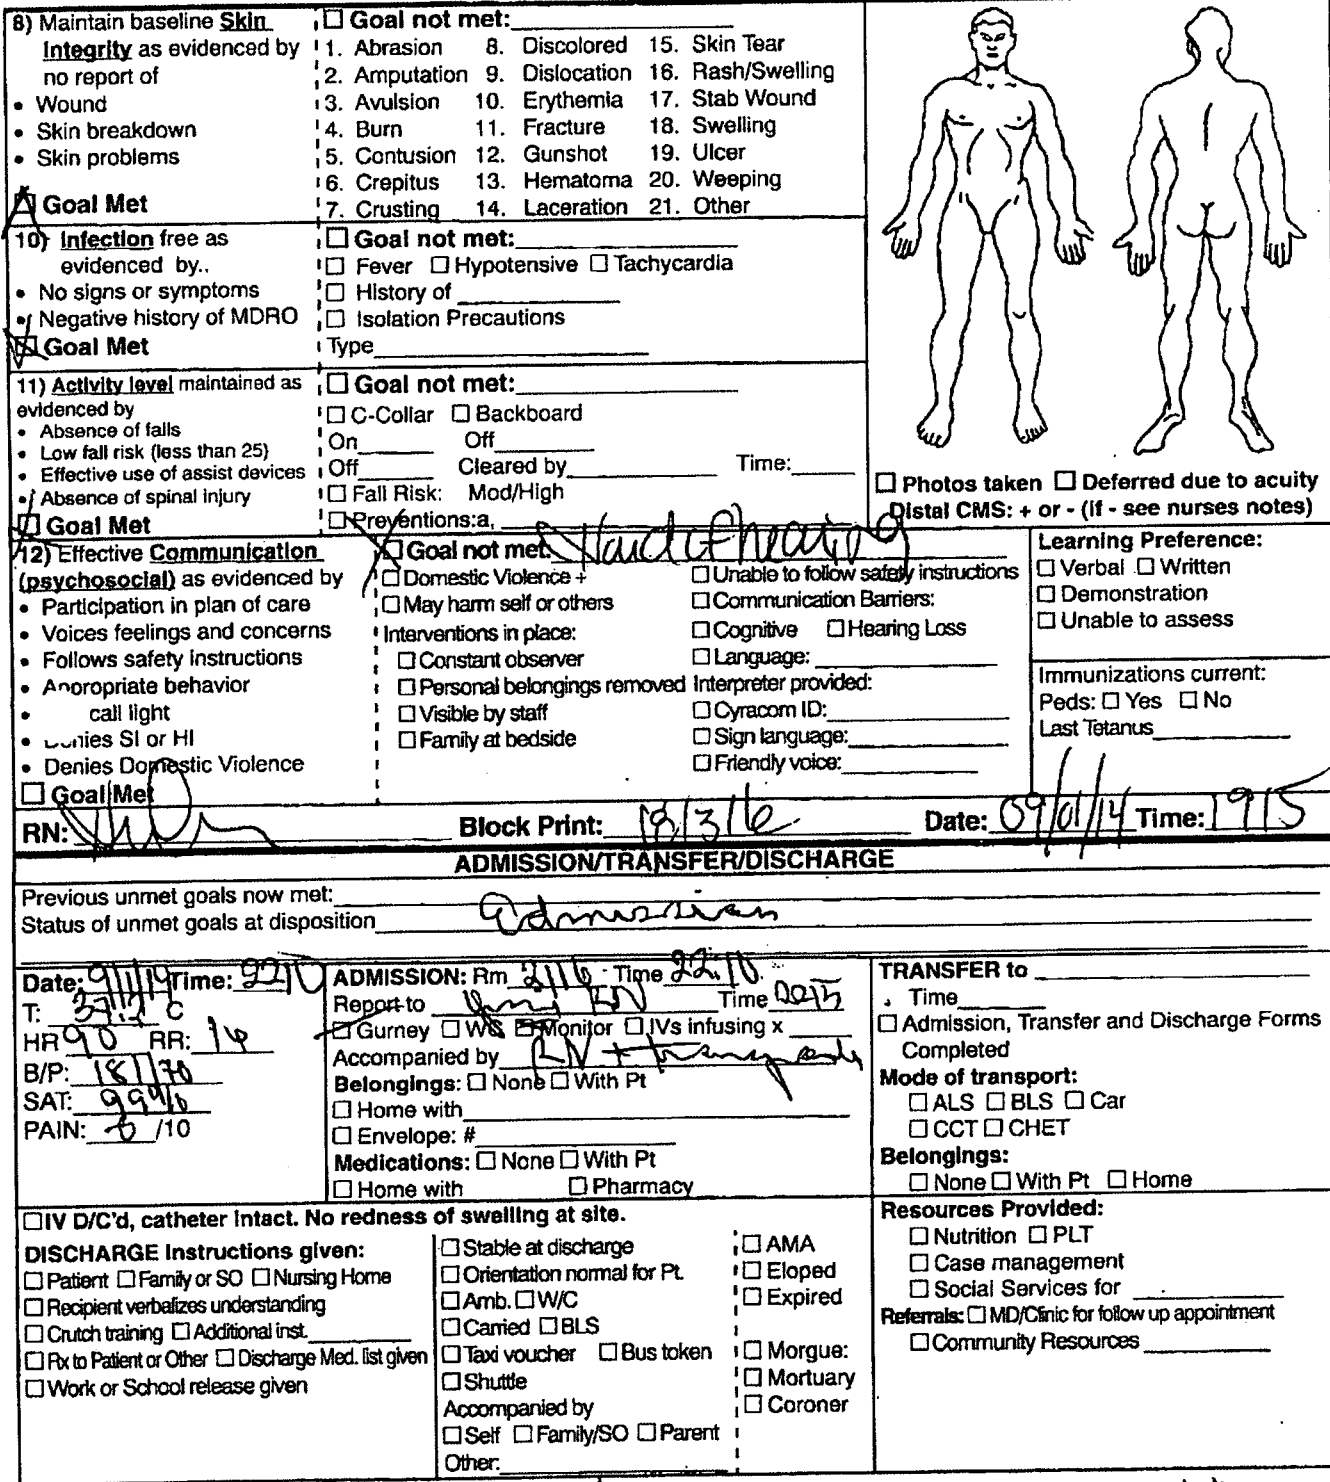 8) Maintain baseline Skin
Integrity as evidenced by
no report of
• Wound
• Skin breakdown
• Skin problems
Goal Met
☐ Goal not met:
1. Abrasion 8. Discolored 15. Skin Tear
2. Amputation 9. Dislocation 16. Rash/Swelling
3. Avulsion 10. Erythemia 17. Stab Wound
4. Burn 11. Fracture 18. Swelling
5. Contusion 12. Gunshot 19. Ulcer
6. Crepitus 13. Hematoma 20. Weeping
7. Crusting 14. Laceration 21. Other
10) Infection free as
evidenced by..
• No signs or symptoms
• Negative history of MDRO
Goal Met
☐ Goal not met:
☐ Fever ☐ Hypotensive ☐ Tachycardia
☐ History of
☐ Isolation Precautions
Type
11) Activity level maintained as
evidenced by
• Absence of falls
• Low fall risk (less than 25)
• Effective use of assist devices
• Absence of spinal injury
Goal Met
☐ Goal not met:
☐ C-Collar ☐ Backboard
On Off
Off Cleared by Time:
☐ Fall Risk: Mod/High
☐ Preventions:a,
☐ Photos taken ☐ Deferred due to acuity
Distal CMS: + or - (if - see nurses notes)
12) Effective Communication
(psychosocial) as evidenced by
• Participation in plan of care
• Voices feelings and concerns
• Follows safety instructions
• Appropriate behavior
• call light
• Denies SI or HI
• Denies Domestic Violence
☐ Goal Met
Goal not met: Hard of hearing
☐ Domestic Violence + ☐ Unable to follow safety instructions
☐ May harm self or others ☐ Communication Barriers:
Interventions in place: ☐ Cognitive ☐ Hearing Loss
☐ Constant observer ☐ Language:
☐ Personal belongings removed Interpreter provided:
☐ Visible by staff ☐ Cyracom ID:
☐ Family at bedside ☐ Sign language:
☐ Friendly voice:
Learning Preference:
☐ Verbal ☐ Written
☐ Demonstration
☐ Unable to assess
Immunizations current:
Peds: ☐ Yes ☐ No
Last Tetanus
RN: Block Print: 18316 Date: 09/01/14 Time: 1915
ADMISSION/TRANSFER/DISCHARGE
Previous unmet goals now met:
Status of unmet goals at disposition Admission
Date: 9/1/14 Time: 2210
T: C
HR 90 RR:
B/P: 181/70
SAT: 99%
PAIN: /10
ADMISSION: Rm 2116 Time 22:10
Report to RN Time
☐ Gurney ☐ W/C Monitor ☐ IVs infusing x
Accompanied by RN +
Belongings: ☐ None ☐ With Pt
☐ Home with
☐ Envelope: #
Medications: ☐ None ☐ With Pt
☐ Home with ☐ Pharmacy
TRANSFER to
Time
☐ Admission, Transfer and Discharge Forms
Completed
Mode of transport:
☐ ALS ☐ BLS ☐ Car
☐ CCT ☐ CHET
Belongings:
☐ None ☐ With Pt ☐ Home
☐ IV D/C'd, catheter intact. No redness of swelling at site.
DISCHARGE Instructions given:
☐ Patient ☐ Family or SO ☐ Nursing Home
☐ Recipient verbalizes understanding
☐ Crutch training ☐ Additional inst.
☐ Rx to Patient or Other ☐ Discharge Med. list given
☐ Work or School release given
☐ Stable at discharge
☐ Orientation normal for Pt.
☐ Amb. ☐ W/C
☐ Carried ☐ BLS
☐ Taxi voucher ☐ Bus token
☐ Shuttle
Accompanied by
☐ Self ☐ Family/SO ☐ Parent
Other:
☐ AMA
☐ Eloped
☐ Expired
☐ Morgue:
☐ Mortuary
☐ Coroner
Resources Provided:
☐ Nutrition ☐ PLT
☐ Case management
☐ Social Services for
Referrals: ☐ MD/Clinic for follow up appointment
☐ Community Resources